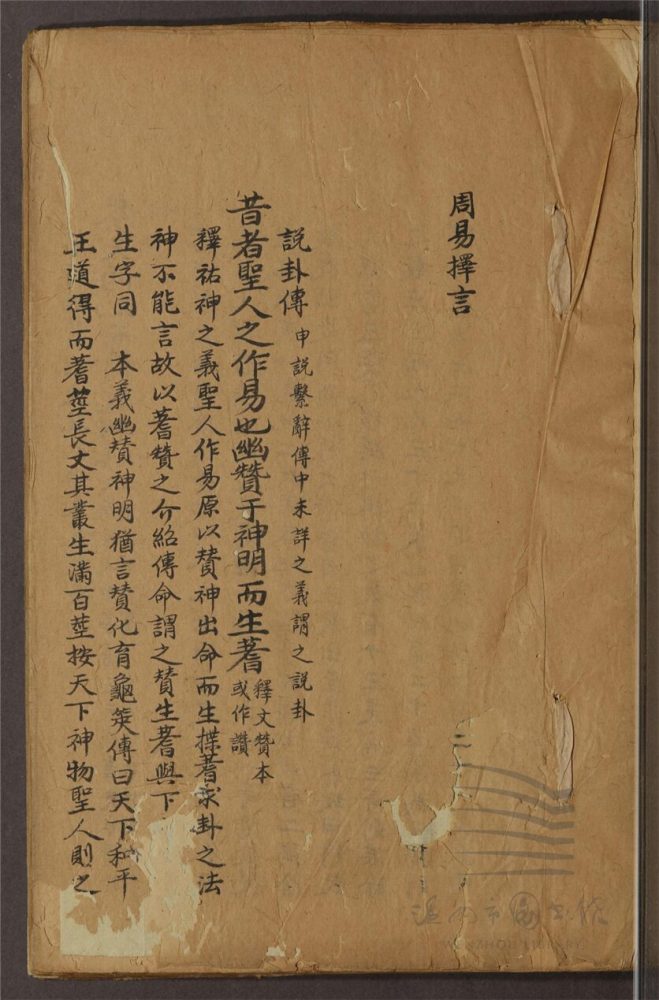 周易擇言
說卦傳 申說繫辭傳中未詳之義謂之說卦
昔者聖人之作易也幽贊于神明而生蓍 釋文贊本或作讚
釋祐神之義聖人作易原以贊神出命而生揲蓍求卦之法
神不能言故以蓍贊之介紹傳命謂之贊生蓍與下
生字同 本義幽贊神明猶言贊化育龜筴傳曰天下和平
王道得而蓍莖長丈其叢生滿百莖按天下神物聖人則之
溫州市圖書館
WENZHOU LIBRARY